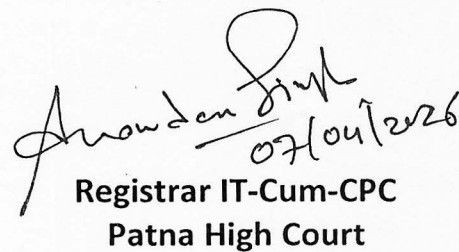 Singh
07/04/2026
Registrar IT-Cum-CPC
Patna High Court